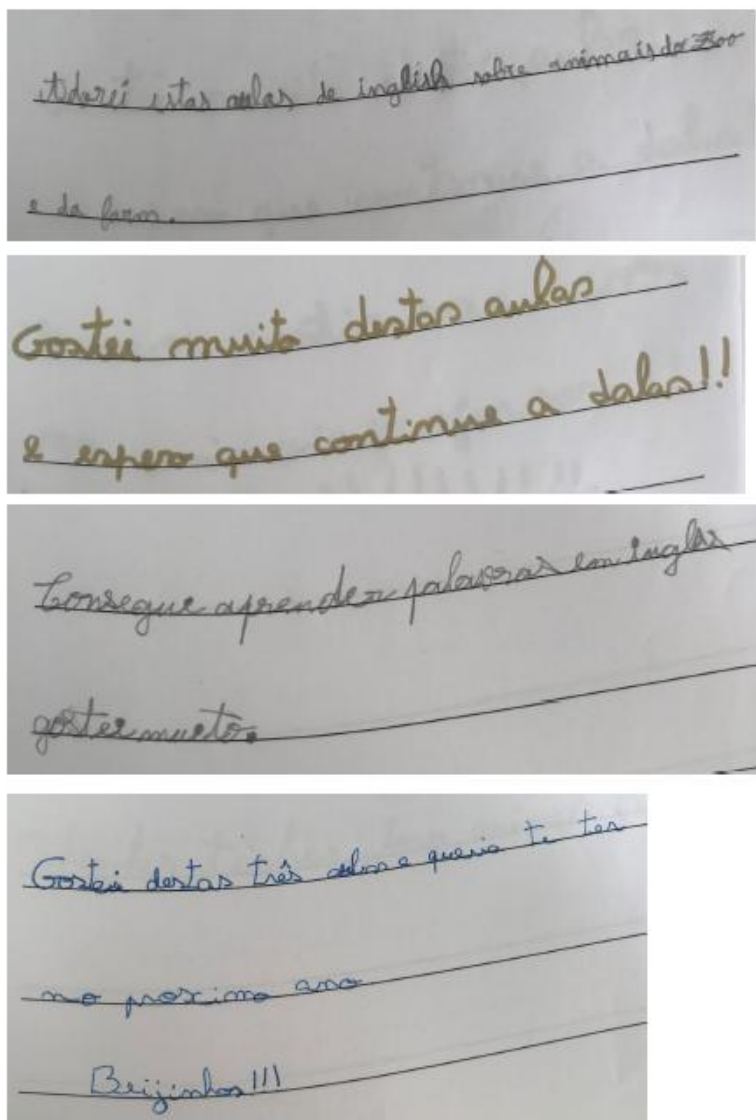 Adorei estas aulas de inglish sobre animais do Zoo
e da farm.
Gostei muito destas aulas
e espero que continue a dalas!!
Consegui aprender palavras em inglês
gostei muito.
Gostei destas três aulas e queria te ter
no proximo ano
Beijinhos!!!